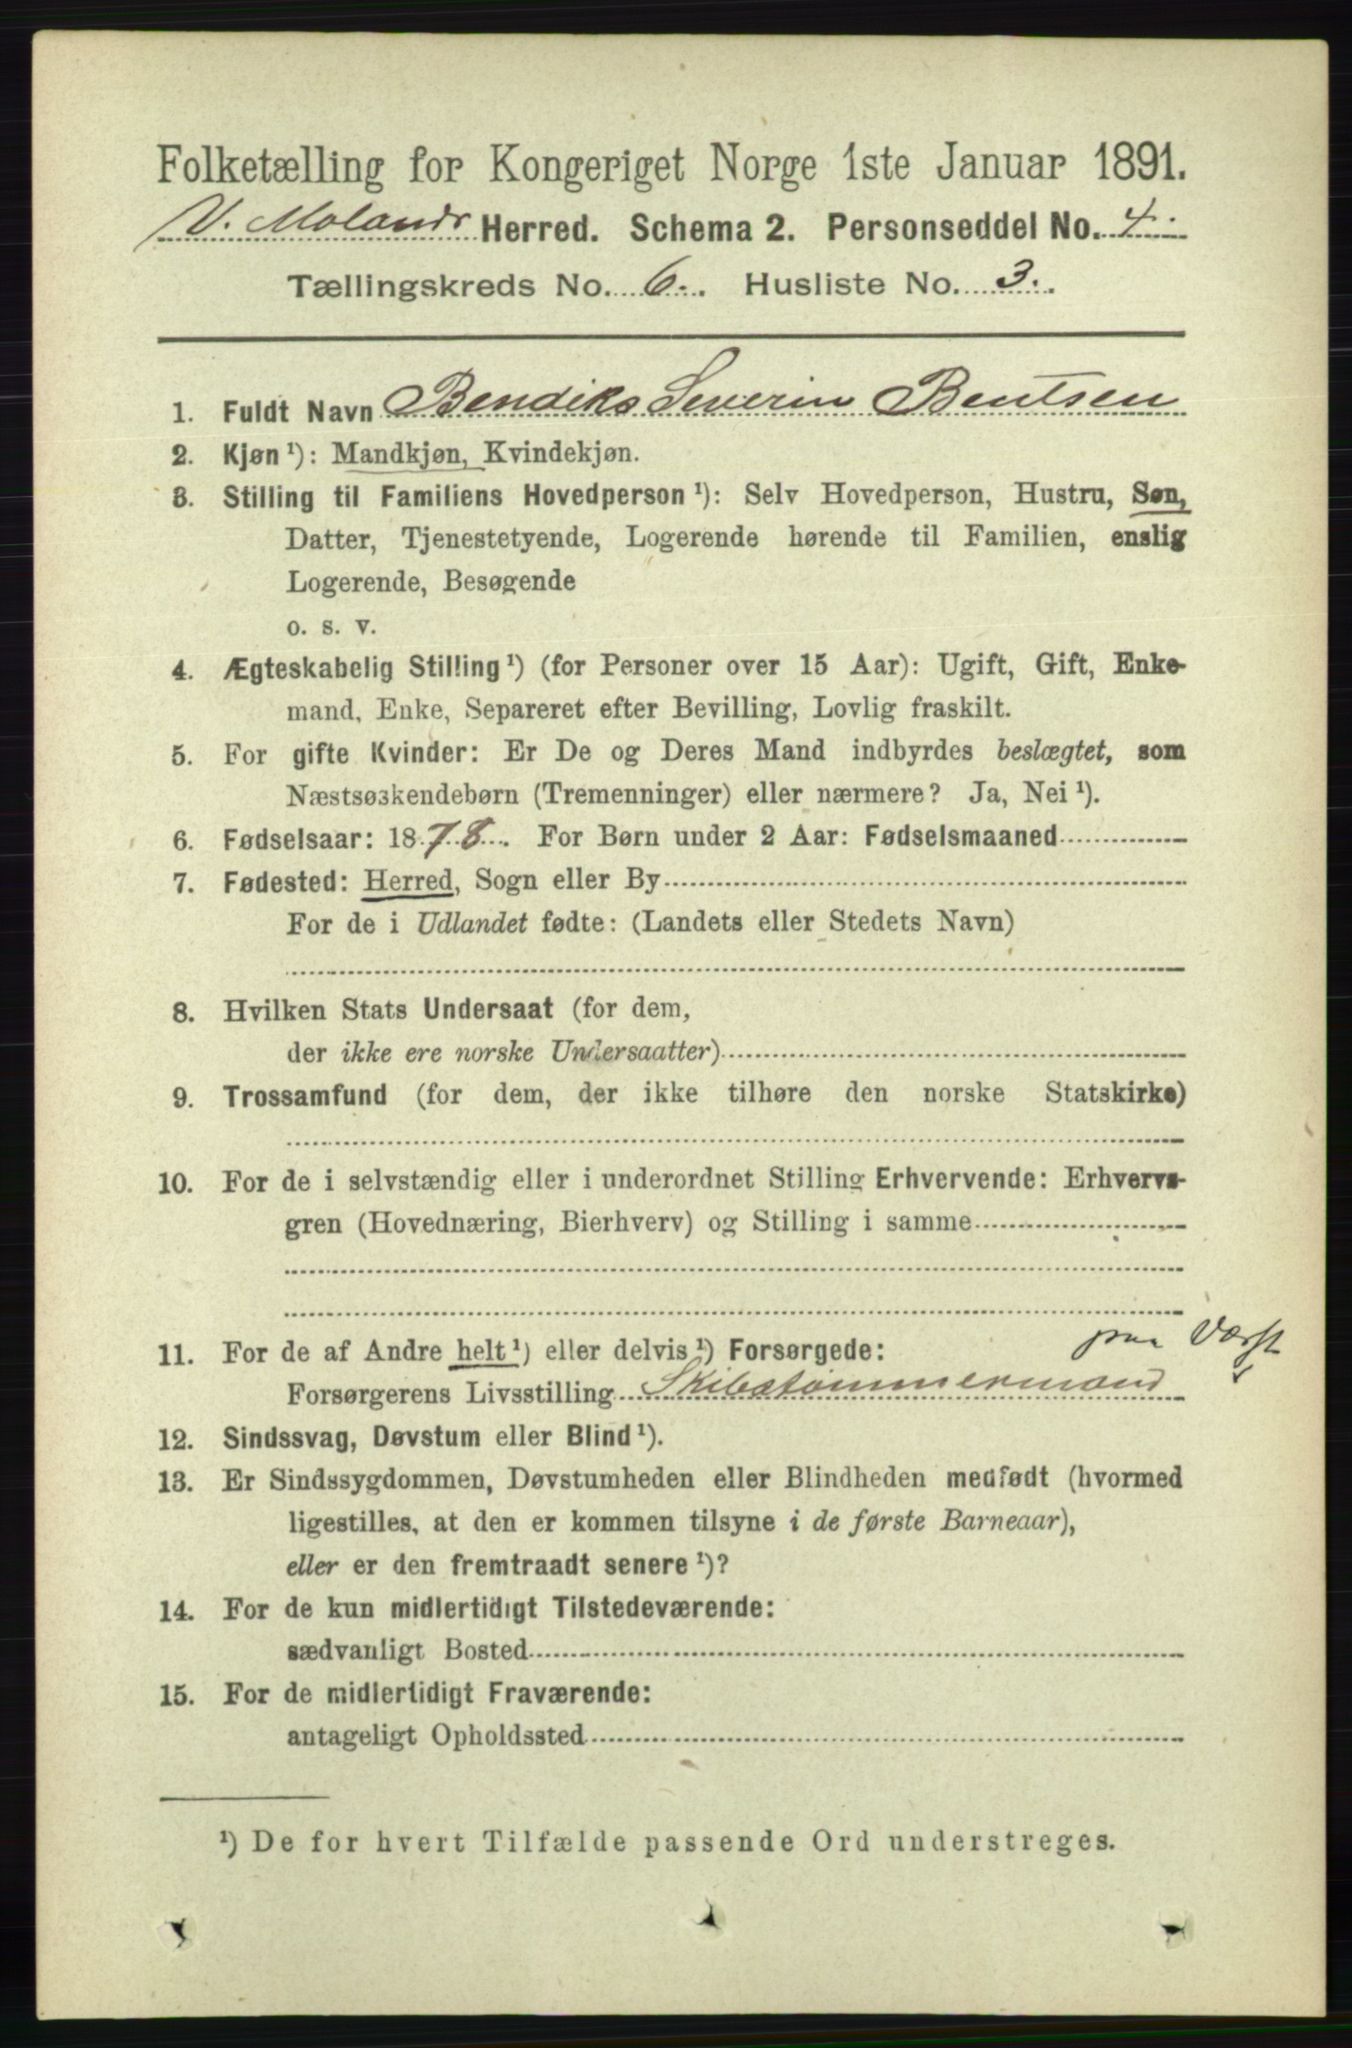 Folketælling for Kongeriget Norge 1ste Januar 1891.
V. Molands Herred. Schema 2. Personseddel No. 4.
Tællingskreds No. 6. Husliste No. 3.
1. Fuldt Navn Bendiks Severin Bentsen
2. Kjøn ¹): Mandkjøn, Kvindekjøn.
3. Stilling til Familiens Hovedperson ¹): Selv Hovedperson, Hustru, Søn,
Datter, Tjenestetyende, Logerende hørende til Familien, enslig
Logerende, Besøgende
o. s. v.
4. Ægteskabelig Stilling ¹) (for Personer over 15 Aar): Ugift, Gift, Enke-
mand, Enke, Separeret efter Bevilling, Lovlig fraskilt.
5. For gifte Kvinder: Er De og Deres Mand indbyrdes beslægtet, som
Næstsøskendebørn (Tremenninger) eller nærmere? Ja, Nei ¹).
6. Fødselsaar: 1878. For Børn under 2 Aar: Fødselsmaaned
7. Fødested: Herred, Sogn eller By
For de i Udlandet fødte: (Landets eller Stedets Navn)
8. Hvilken Stats Undersaat (for dem,
der ikke ere norske Undersaatter)
9. Trossamfund (for dem, der ikke tilhøre den norske Statskirke)
10. For de i selvstændig eller i underordnet Stilling Erhvervende: Erhvervs-
gren (Hovednæring, Bierhverv) og Stilling i samme
11. For de af Andre helt ¹) eller delvis ¹) Forsørgede: paa Værft
Forsørgerens Livsstilling Skibstømmermand
12. Sindssvag, Døvstum eller Blind ¹).
13. Er Sindssygdommen, Døvstumheden eller Blindheden medfødt (hvormed
ligestilles, at den er kommen tilsyne i de første Barneaar),
eller er den fremtraadt senere ¹)?
14. For de kun midlertidigt Tilstedeværende:
sædvanligt Bosted
15. For de midlertidigt Fraværende:
antageligt Opholdssted
¹) De for hvert Tilfælde passende Ord understreges.